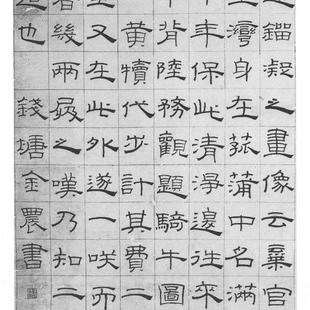 之鎦凝之畫像云棄官
灣身在菰蒲中名滿
年保此清淨邊往來
背陸務觀題騎牛圖
黃犢代步計其費二
又在此外遂一咲而
者幾兩屐之嘆乃知二
也 錢塘金農書